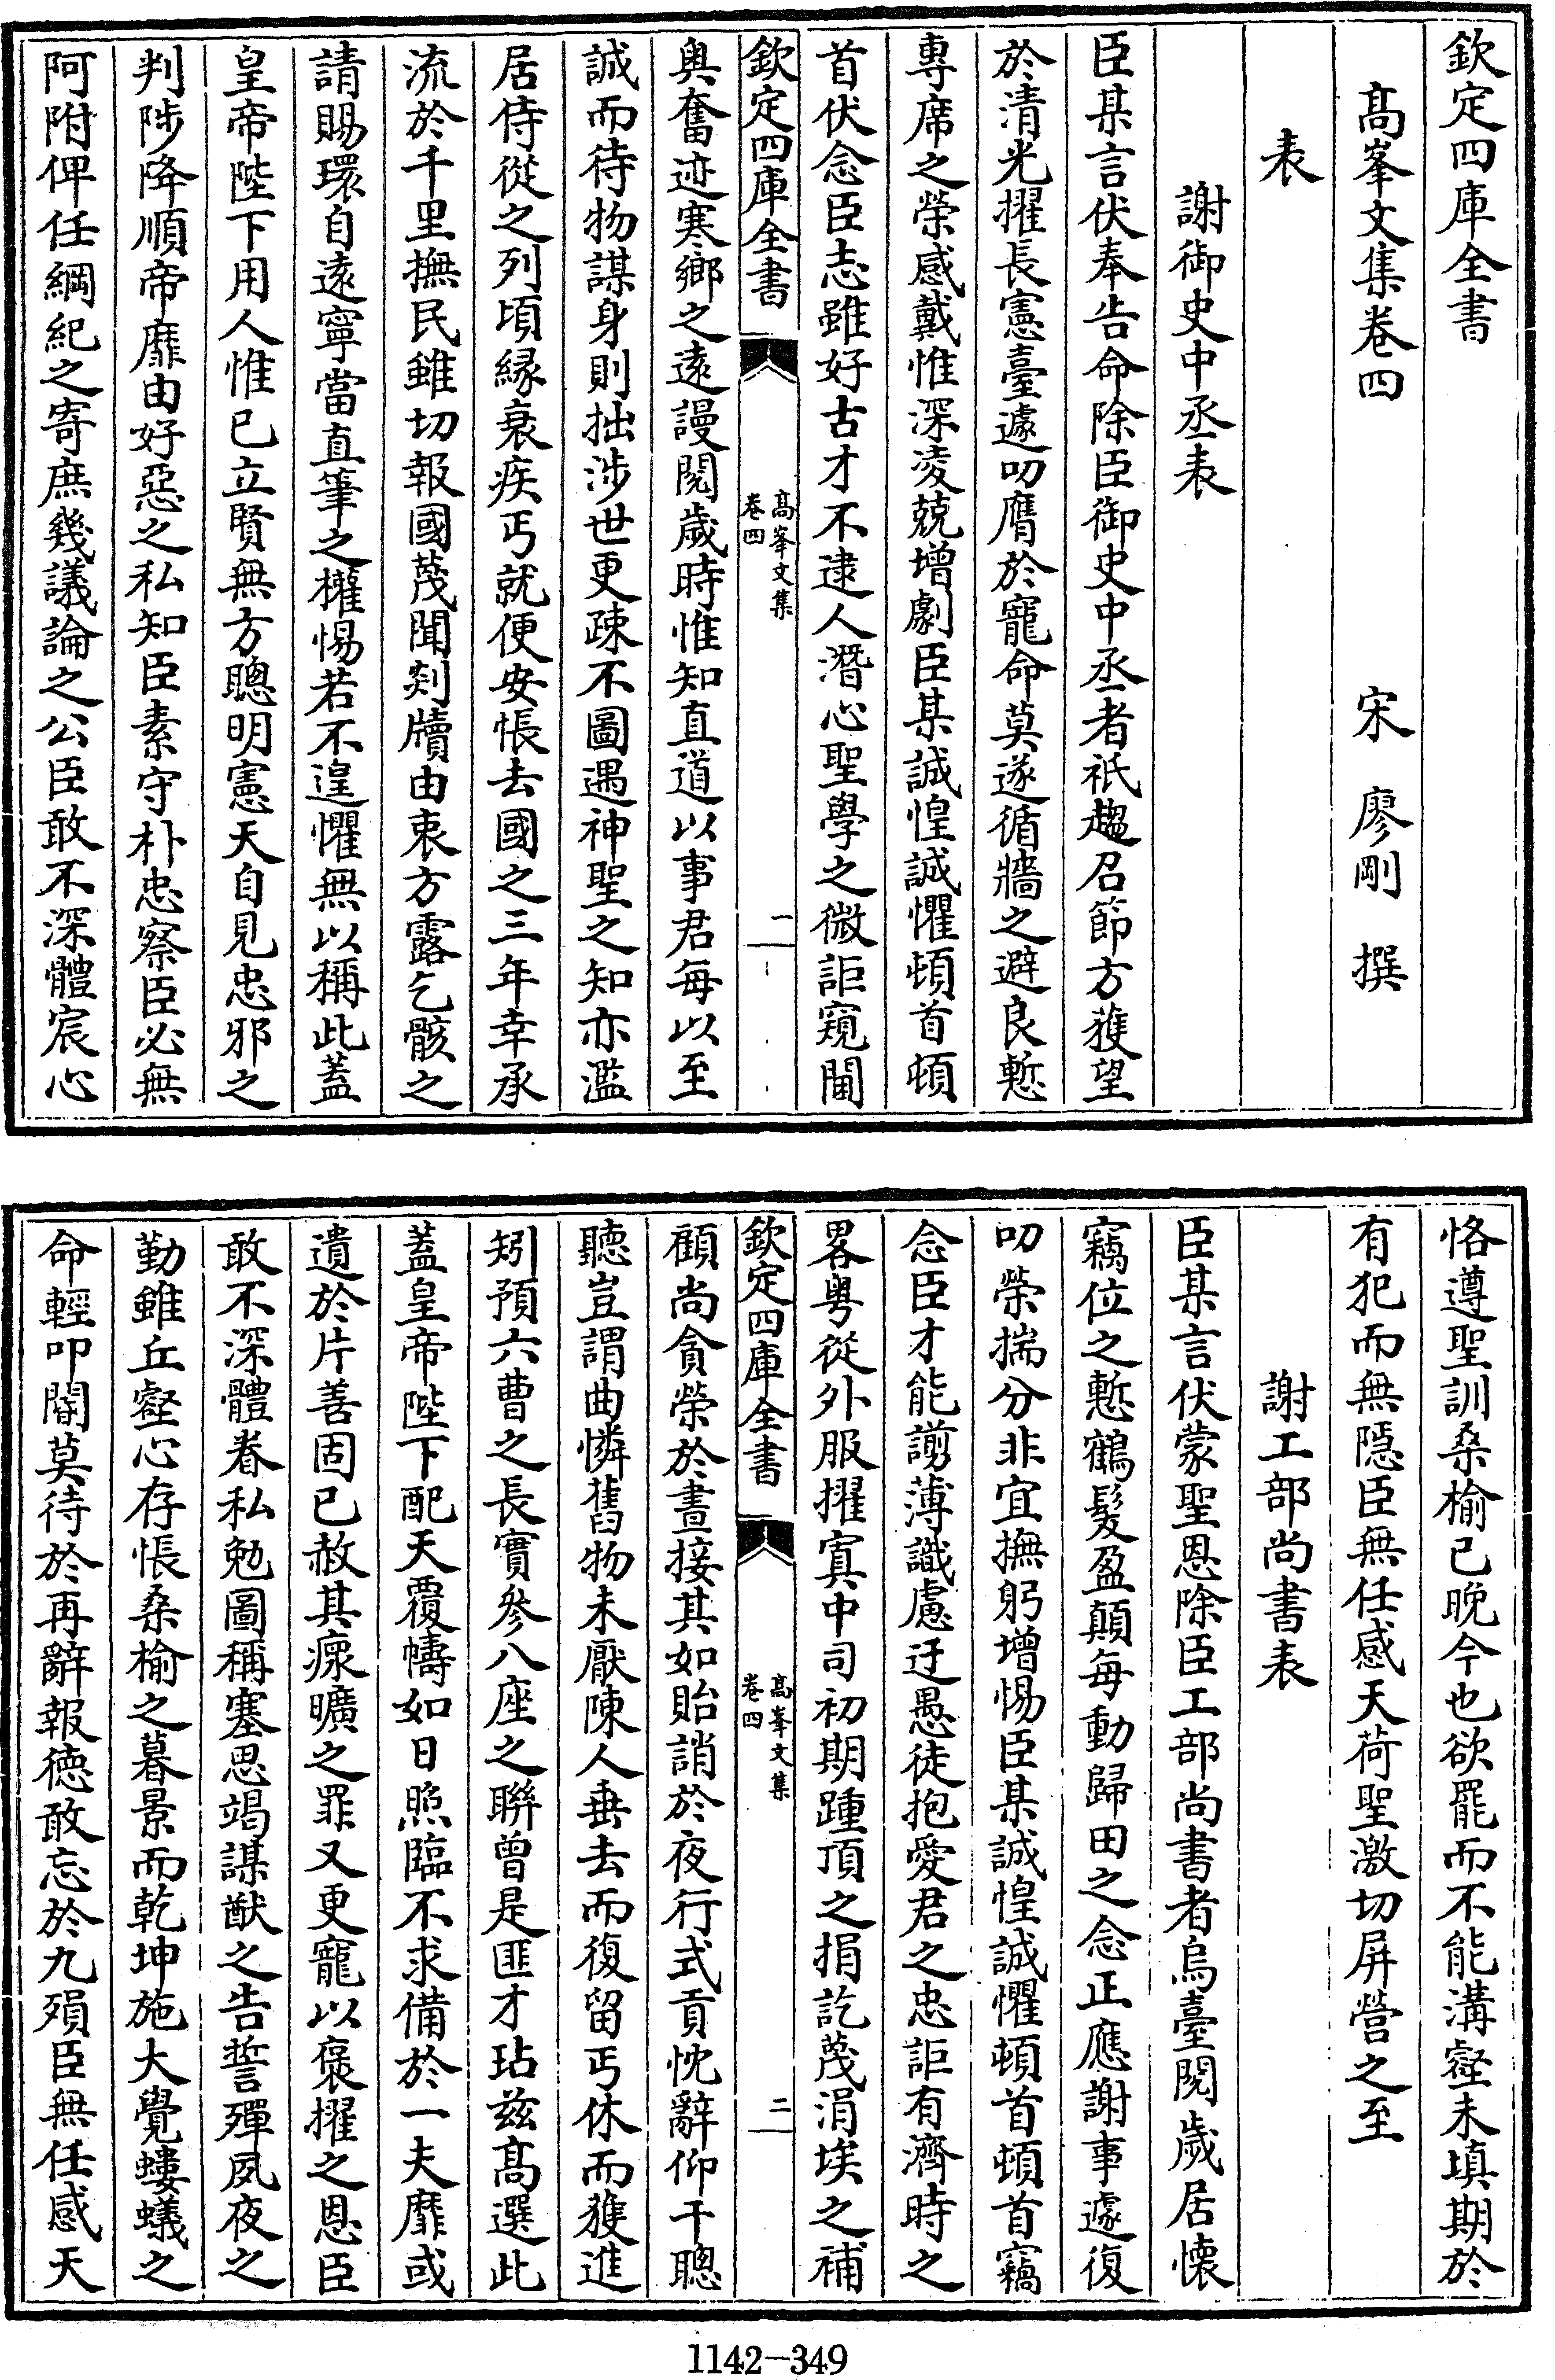 欽定四庫全書
高峯文集卷四　宋　廖剛　撰
表
謝御史中丞表
臣某言伏奉告命除臣御史中丞者祇趨召節方獲望
於清光擢長憲臺遽叨膺於寵命莫遂循牆之避良慙
專席之榮感戴惟深凌兢增劇臣某誠惶誠懼頓首頓
首伏念臣志雖好古才不逮人潛心聖學之微詎窺閫
欽定四庫全書　高峯文集卷四　一
奥奮迹寒鄉之遠謾閱歲時惟知直道以事君每以至
誠而待物謀身則拙涉世更疎不圖遇神聖之知亦濫
居侍從之列頃緣衰疾丐就便安悵去國之三年幸承
流於千里撫民雖切報國蔑聞剡牘由衷方露乞骸之
請賜環自遠寧當直筆之權惕若不遑懼無以稱此蓋
皇帝陛下用人惟已立賢無方聰明憲天自見忠邪之
判陟降順帝靡由好惡之私知臣素守朴忠察臣必無
阿附俾任綱紀之寄庶幾議論之公臣敢不深體宸心
恪遵聖訓桑榆已晚今也欲罷而不能溝壑未填期於
有犯而無隱臣無任感天荷聖激切屏營之至
謝工部尚書表
臣某言伏蒙聖恩除臣工部尚書者烏臺閱歲居懷
竊位之慙鶴髮盈顛每動歸田之念正應謝事遽復
叨榮揣分非宜撫躬增惕臣某誠惶誠懼頓首頓首竊
念臣才能謭薄識慮迂愚徒抱愛君之忠詎有濟時之
畧粤從外服擢寘中司初期踵頂之捐訖蔑涓埃之補
欽定四庫全書　高峯文集卷四　二
顧尚貪榮於晝接其如貽誚於夜行式貢忱辭仰干聰
聽豈謂曲憐舊物未厭陳人垂去而復留丐休而獲進
矧預六曹之長實參八座之聯曾是匪才玷兹高選此
蓋皇帝陛下配天覆幬如日照臨不求備於一夫靡或
遺於片善固已赦其瘝曠之罪又更寵以褒擢之恩臣
敢不深體眷私勉圖稱塞思竭謀猷之告誓殫夙夜之
勤雖丘壑心存悵桑榆之暮景而乾坤施大覺螻蟻之
命輕叩閽莫待於再辭報德敢忘於九殞臣無任感天
1142-349